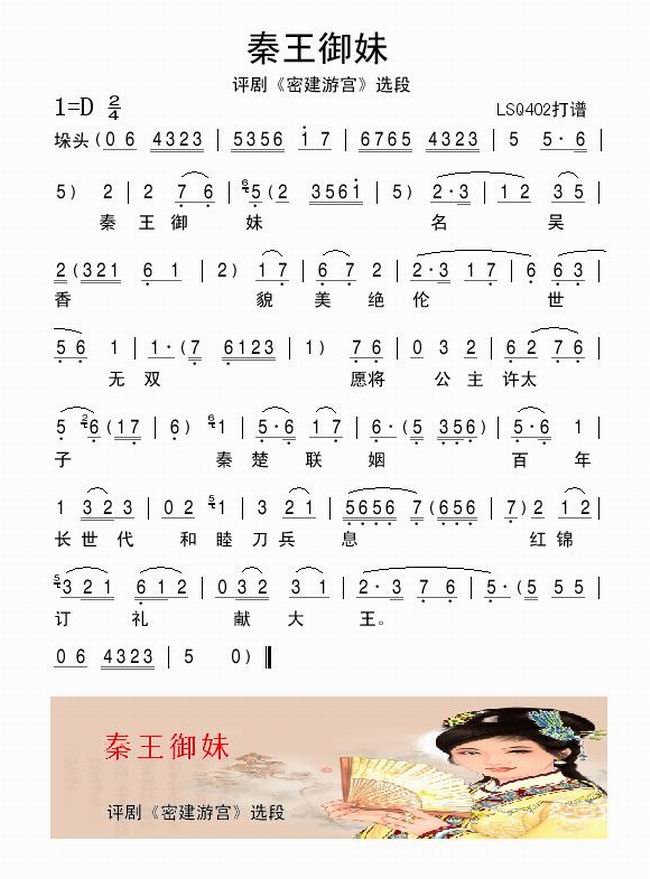 秦王御妹
评剧《密建游宫》选段
1=D 2/4 LSQ402打谱
垛头(0 6 4323 | 5356 1 7 | 6765 4323 | 5 5· 6 |
5) 2 | 2 7 6 | 6 5(2 3561 | 5) 2·3 | 1 2 3 5 |
秦 王 御 妹 名 吴
2(321 6 1 | 2) 1 7 | 6 7 2 | 2·3 1 7 | 6 6 3 |
香 貌 美 绝 伦 世
5 6 1 | 1·(7 6123 | 1) 7 6 | 0 3 2 | 6 2 7 6 |
无 双 愿将 公 主 许太
5 2 6(17 | 6) 6 1 | 5·6 1 7 | 6·(5 356) | 5·6 1 |
子 秦 楚 联 姻 百 年
1 3 2 3 | 0 2 5 1 | 3 2 1 | 5656 7(656 | 7)2 1 2 |
长 世 代 和 睦 刀 兵 息 红 锦
5 3 2 1 6 1 2 | 0 3 2 3 1 | 2· 3 7 6 | 5·(5 5 5 |
订 礼 献 大 王。
0 6 4323 | 5 0)
秦王御妹
评剧《密建游宫》选段